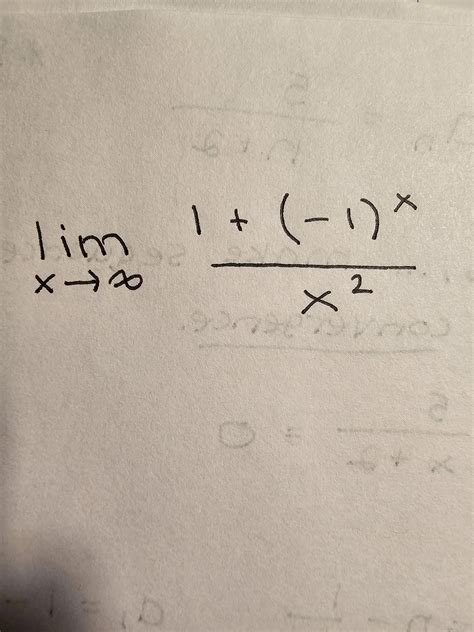 lim x→∞ (1 + (-1)^x) / x^2